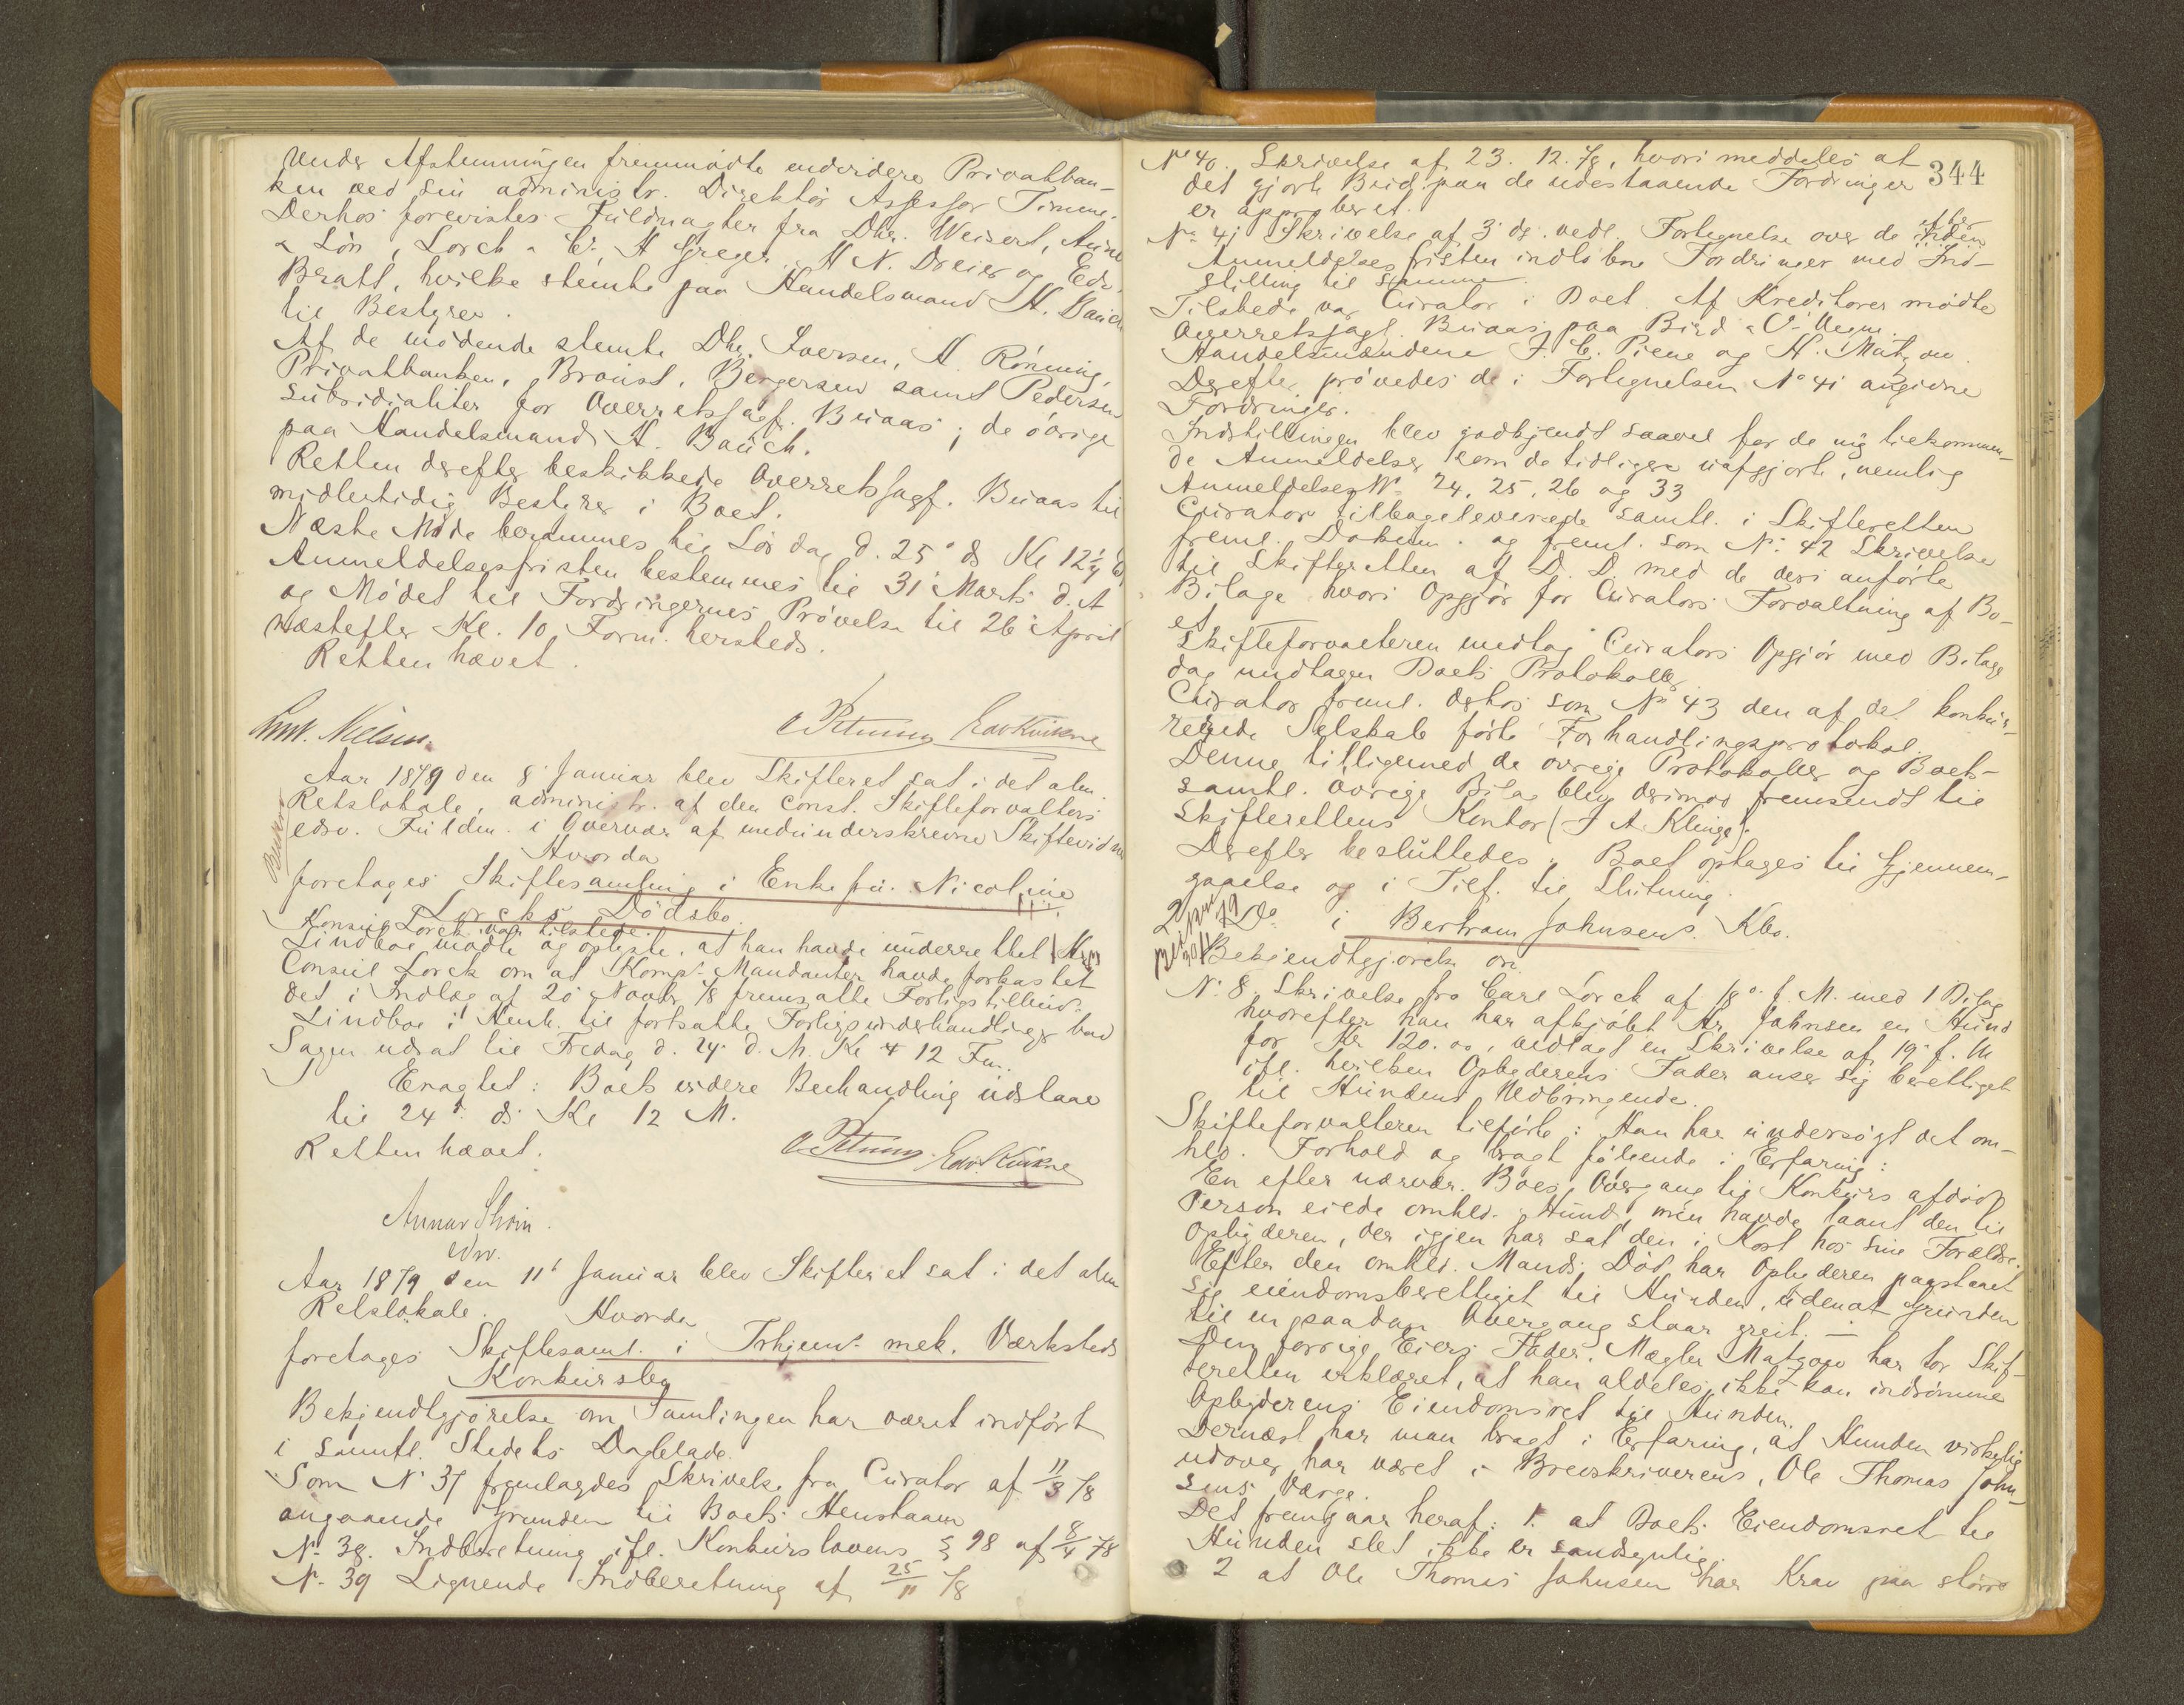 Under Afstemningen fremmødte endvidere Privatban-
ken ved sin administr. Direktør Assessor Timme.
Derhos forevistes Fuldmagter fra Dhr. Weisert, Aune
& Søn, Lorck & Co, H Greger, H N. Dreier og Edv.
Bratt, hvilke stemte paa Handelsmand H. Bauck
til Bestyrer.
Af de mødende stemte Dhr. Iversen, H. Rønning,
Privatbanken, Broust, Bergersen samt Pedersen
subsidialiter for Overretssagf. Buaas; de øvrige
paa Handelsmand H. Bauck.
Retten derefter beskikkede Overretssagf. Buaas til
midlertidig Bestyrer i Boet.
Næste Møde berammes til Lørdag d. 25de ds Kl 12 1/4
Anmeldelsesfristen bestemmes til 31 Marts d. A
og Mødet til Fordringernes Prøvelse til 26 April
næstefter Kl. 10 Form. hersteds.
Retten hævet.
Nielsen. Edv Kuikne
Aar 1879 den 8 Januar blev Skifteret sat i det alm.
Retslokale, administr. af den const. Skifteforvalters
edsv. Fuldm. i Overvær af medunderskrevne Skiftevidne
Hvorda
foretages Skiftesamling i Enkefru Nicoline
Lorcks Dødsbo.
Konsul Lorck var tilstede.
Lindboe mødte og oplyste, at han havde underrettet Hr
Consul Lorck om at Komp. Mandanter havde forkastet
det i Indlæg af 20 Novbr. 78 fremsatte Forligstilbud.
Lindboe i Henh. til fortsatte Forligsunderhandlinger bad
Sagen udsat til Fredag d. 24. d. M. Kl 12 Fm.
Eragtet: Boets videre Behandling udstaar
til 24de ds Kl 12 M.
Retten hævet.
Edv Kuikne
Annar
edsv.
Aar 1879 den 11te Januar blev Skifteret sat i det alm
Retslokale. Hvorda
foretages Skiftesaml. i Trhjems mek. Værksteds
Konkursbo
Bekjendtgjørelse om Samlingen har været indført
i samtl. Stedets Dagblade.
Som No 37 fremlagdes Skrivelse fra Curator af 11/3 78
angaaende Grunden til Boets Henstaaen
No 38. Indberetning ifl. Konkurslovens § 98 af 8/4 78
No 39 Lignende Indberetning af 25/11 78
344
No 40. Skrivelse af 23. 12. 78, hvori meddeles at
det gjorte Bud paa de udestaaende Fordringer
er approberet.
No 41 Skrivelse af 3 ds. vedl. Fortegnelse over de efter
Anmeldelsesfristen indløbne Fordringer med Ind-
stilling til samme.
Tilstede var Curator i Boet. Af Kreditorer mødte
Overretssagf. Buaas paa Bird & Co Vegne.
Handelsmændene J. C. Piene og H. Matzow
Derefter prøvedes de i Fortegnelsen No 41 angivne
Fordringer.
Indstillingen blev godkjendt saavel for de nye tilkommen-
de Anmeldelser som de tidligere uafgjorte, nemlig
Anmeldelser No 24, 25, 26 og 33
Curator tilbageleverede samtl. i Skifteretten
freml. Dokum. og freml. som No 42 Skrivelse
til Skifteretten af D. D. med de deri anførte
Bilage hvori Opgjør for Curators Forvaltning af Bo-
et
Skifteforvalteren modtog Curators Opgjør med Bilage
dog undtagen Boets Protokoller
Curator freml. derhos som No 43 den af det konkur-
rerede Selskab førte Forhandlingsprotokol.
Denne tilligemed de øvrige Protokoller og Boets
samtl. øvrige Bilag blev derimod fremsendt til
Skifterettens Kontor (J A Klinge).
Derefter besluttedes: Boet optages til Gjennem-
gaaelse og i Tilf. til Slutning.
Do i Bertram Johnsens Kbo.
Bekjendtgjørelse om
No 8. Skrivelse fra Carl Lorck af 18de f. M. med 1 Bilag
hvorefter han har afkjøbt Hr. Johnsen en Hund
for Kr 120.00, vedlagt en Skrivelse af 19de f. M
ifl. hvilken Opbyderens Fader anser sig berettiget
til Hundens Udbringende.
Skifteforvalteren tilførte: Han har undersøgt det om-
hld. Forhold og bragt følgende i Erfaring:
En efter nærvær. Boes Overgang til Konkurs afdød
Person eiede omhld. Hund, men havde laant den til
Opbyderen, der igjen har sat den i Kost hos sine Forældre.
Efter den omhld. Mands Død har Opbyderen paastaaet
sig eiendomsberettiget til Hunden, uden at Grunden
til en saadan Overgang staar greit. –
Den forrige Eiers Fader, Mægler Matzow har for Skif-
teretten erklæret, at han aldeles ikke kan indrømme
Opbyderens Eiendomsret til Hunden.
Dernæst har man bragt i Erfaring, at Hunden virkelig
udover har været i Brevskriverens, Ole Thomas John-
sens Værge.
Det fremgaar heraf: 1. at Boets Eiendomsret til
Hunden slet ikke er sandsynlig.
2 at Ole Thomas Johnsen har Krav paa større